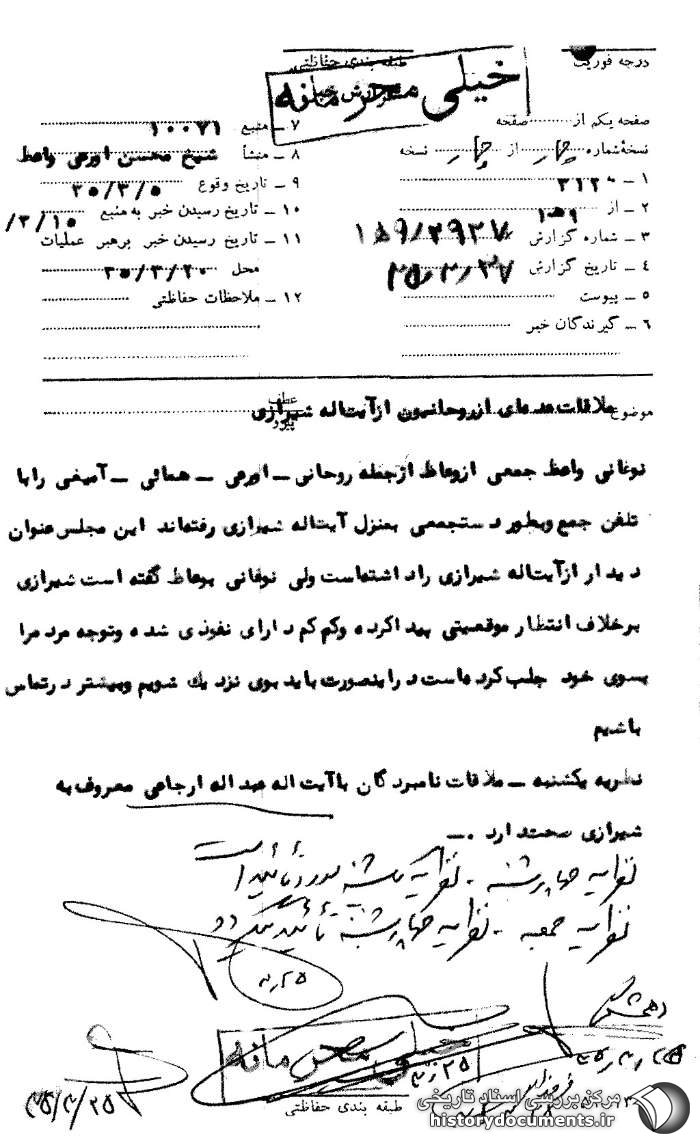 درجه فوریت
طبقه بندی حفاظتی
خیلی محرمانه
صفحه یکم از صفحه
نسخهٔ شماره چهار از چهار نسخه
۱ ـ ۳۱۲۰
۲ ـ از ۱۵۹
۳ ـ شماره گزارش ۱۵۹/۲۹۲۷
۴ ـ تاریخ گزارش ۳۵/۳/۲۷
۵ ـ پیوست
۶ ـ گیرندگان خبر
۷ ـ منبع ۱۰۰۷۱
۸ ـ منشأ شیخ محسن اورعی واعظ
۹ ـ تاریخ وقوع ۳۵/۳/۵
۱۰ ـ تاریخ رسیدن خبر به منبع ۳/۱۵/
۱۱ ـ تاریخ رسیدن خبر برهبر عملیات
محل ۳۵/۳/۲۰
۱۲ ـ ملاحظات حفاظتی
عطف
موضوع ملاقات عدهای از روحانیون از آیتاله شیرازی
پیرو
نوغانی واعظ جمعی از وعاظ ازجمله روحانی ـ اورعی ـ همائی ـ آمیغی را با
تلفن جمع و بطور دستجمعی بمنزل آیتاله شیرازی رفتهاند این مجلس عنوان
دیدار از آیتاله شیرازی را داشتهاست ولی نوغانی بوعاظ گفته است شیرازی
برخلاف انتظار موقعیتی پیدا کرده و کم کم دارای نفوذی شده و توجه مردم را
بسوی خود جلب کردهاست در اینصورت باید بوی نزدیك شویم و بیشتر در تماس
باشیم
نظریه یکشنبه ـ ملاقات نامبردگان با آیت اله عبداله ارجاعی معروف به
شیرازی صحت دارد .ـ
نظریه چهارشنبه ـ نظریه یکشنبه مورد تأئید است
نظریه جمعه ـ نظریه چهارشنبه تأئید میگردد
۲۵
خیلی محرمانه
۳۵/۳/۲۵
طبقه بندی حفاظتی
مرکز بررسی اسناد تاریخی
historydocuments.ir